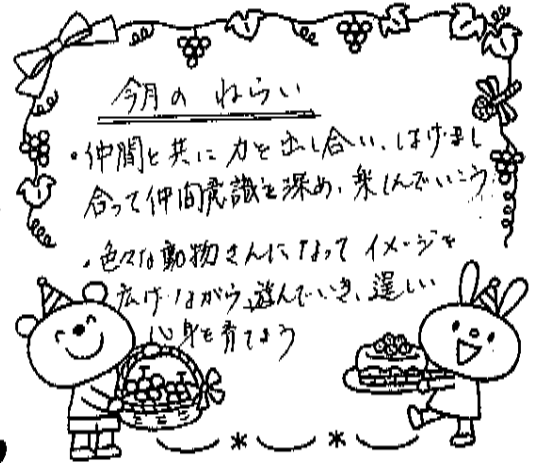 今月の ねらい
・仲間と共に力を出し合い、はげまし
合って仲間意識を深め、楽しんでいこう
・色々な動物さんになって イメージを
広げながら、遊んでいき、逞しい
心身を育てよう